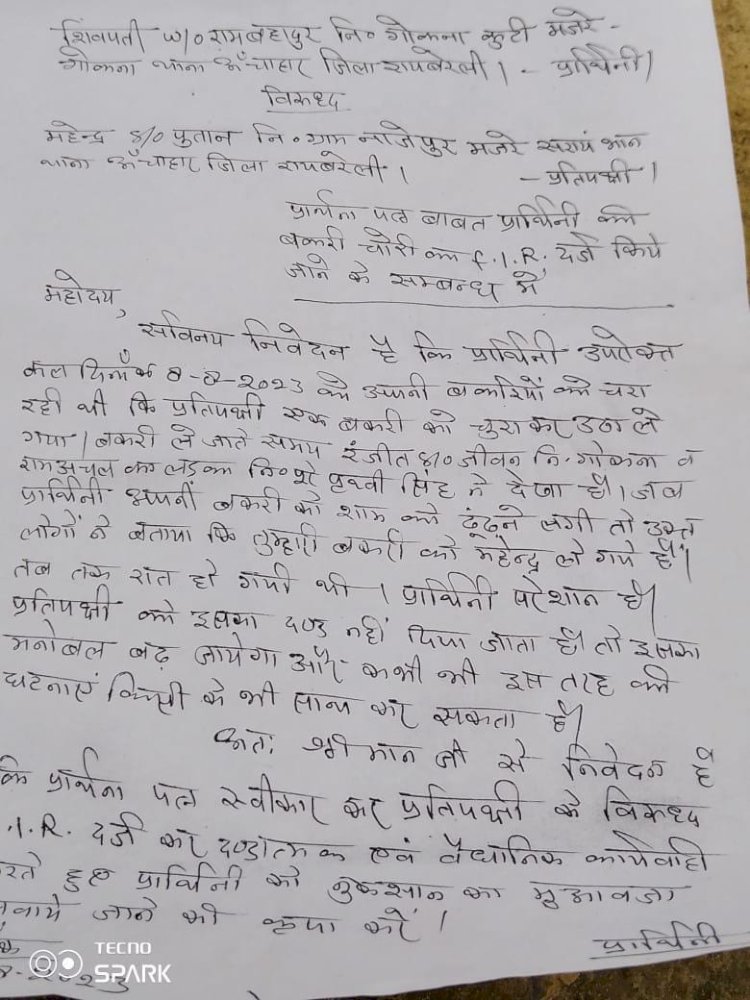 शिवपती w/o रामबहापुर नि० गोकना कुटी मजरे -
गोकना थाना ऊँचाहार जिला रायबरेली। - प्रार्थिनी।
विरुध्द
महेन्द्र s/o पुतान नि० ग्राम नाजेपुर मजरे सरायं भान
थाना ऊँचाहार जिला रायबरेली। - प्रतिपक्षी।
प्रार्थना पत्र बाबत प्रार्थिनी की
बकरी चोरी का F.I.R. दर्ज किये
जाने के सम्बन्ध में
महोदय,
सविनय निवेदन है कि प्रार्थिनी उपरोक्त
कल दिनाँक 8-8-2023 को अपनी बकरियों को चरा
रही थी कि प्रतिपक्षी एक बकरी को चुरा कर उठा ले
गया। बकरी ले जाते समय रंजीत s/o जीवन नि. गोकना व
रामअचल का लड़का नि० पूरे पृथ्वी सिंह ने देखा है। जब
प्रार्थिनी अपनी बकरी को शाम को ढूंढ़ने लगी तो उक्त
लोगों ने बताया कि तुम्हारी बकरी को महेन्द्र ले गये हैं।
तब तक रात हो गयी थी। प्रार्थिनी परेशान है।
प्रतिपक्षी को इसका दण्ड नहीं दिया जाता है। तो इसका
मनोबल बढ़ जायेगा और कभी भी इस तरह की
घटनाएं किसी के भी साथ कर सकता है।
अतः श्रीमान जी से निवेदन है
कि प्रार्थना पत्र स्वीकार कर प्रतिपक्षी के विरूध्द
.I.R. दर्ज कर दण्डात्मक एवं वैधानिक कार्यवाही
रते हुए प्रार्थिनी को नुकसान का मुआवजा
लवाये जाने की कृपा करें।
प्रार्थिनी
8-2023
TECNO
SPARK